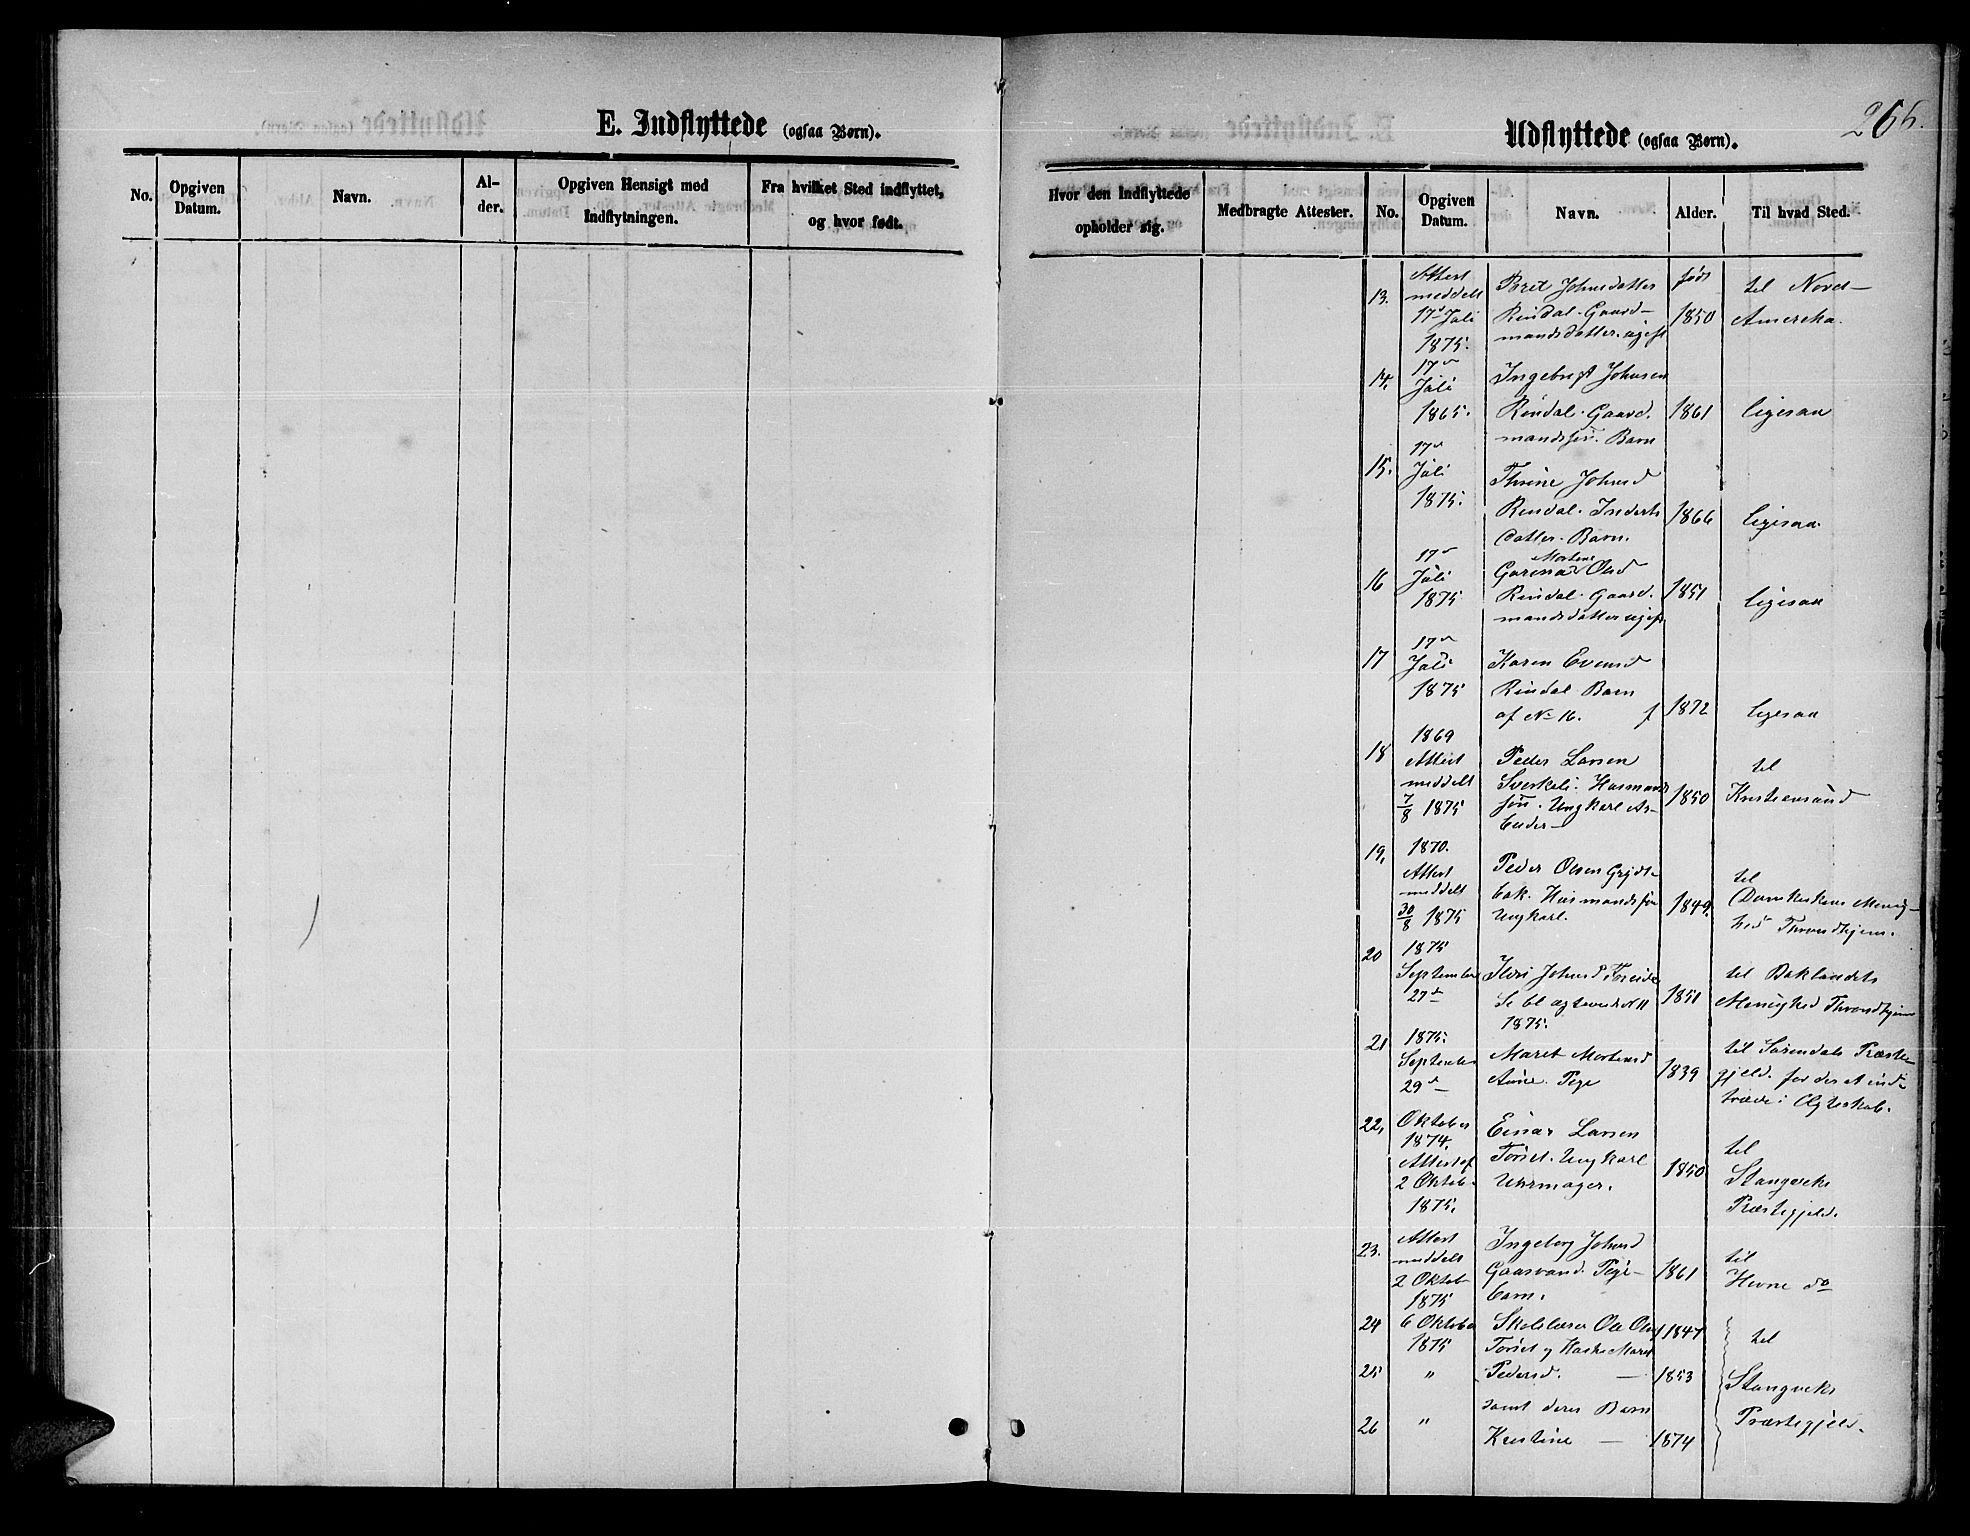 E. Indflyttede (ogsaa Børn).
No.
Opgiven Datum.
Navn.
Al-
der.
Opgiven Hensigt med
Indflytningen.
Fra hvilket Sted indflyttet,
og hvor født.
266.
Udflyttede (ogsaa Børn).
Hvor den Indflyttede
opholder sig.
Medbragte Attester.
No.
Opgiven Datum.
Navn.
Alder.
Til hvad Sted.
13. Attest Beret Johnsdatter født til Nord-
meddelt
17de Juli Rindal. Gaard- 1850 Amerika.
1875. mandsdatter. ugift
14. 17de Juli Ingebrigt Johnsen
1865. Rindal. Gaard- 1861 ligesaa
mandssøn. Barn
15. 17de Juli Thrine Johnsd
1875. Rindal. Inderts 1866 ligesaa
datter. Barn.
16 17de Juli Gurina Mortine Olsd
1875 Rindal. Gaard- 1851 ligesaa
mandsdatter ugift
17 17de Juli Karen Evensd
1875 Rindal Barn
af No 16. f 1872 ligesaa
18 1869
Attest Peder Larsen til
meddelt Sverkeli. Husmands
7/8 1875 søn. Ungkarl Ar- 1850 Kristiansund
beider
19. 1870.
Attest Peder Olsen Grydt- til
meddelt bak. Husmandssøn Domkirkens Menig-
30/8 1875 Ungkarl. 1849. hed Throndhjem.
20 1875
September Johnsd til Baklandets
27de 1851 Menighed Throndhjem
1875.
21 1875.
September Maret Mortensd til Surendals Præste-
29de Aune. Pige 1839 gjeld. for der at ind-
træde i Ægteskab.
22. Oktober Einar Larsen
1874. Attest af Toriset. Ungkarl 1850 til
2 Oktob. Uhrmager. Stangviks
1875. Præstegjeld.
23. Attest Ingeborg Johnsd
meddelt Gaasvand. Pige- 1861 til
2 Oktob barn. Hevne do
1875
24 6 Oktober Skolelærer Ole Ols 1847 til
1875 Toriset og Kone Maret
25 " Pedersd. — 1853 Stangviks
samt deres Barn
26 " Kristine — 1874 Præstegjeld.